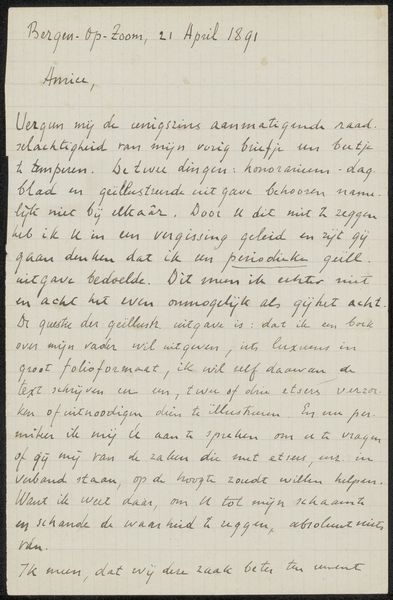 Bergen-op-Zoom, 21 April 1891
Amice,
Vergun mij de enigszins aanmatigende raad-
selachtigheid van mijn vorig briefje een beetje
te temperen. De twee dingen: honorarium-dag-
blad en geïllustreerde uitgave behooren name-
lijk niet bij elkaâr. Door U dit niet te zeggen
heb ik U in een vergissing geleid en zijt gij
gaan denken dat ik een periodieke geïll.
uitgave bedoelde. Dit meen ik echter niet
en acht het even onmogelijk als gij het acht.
De quaestie der geïllustr. uitgave is: dat ik een boek
over mijn vader wil uitgeven, iets luxueus in
groot folioformaat, ik wil zelf daarvan de
text schrijven en een, twee of drie etsers verzoe-
ken of uitnoodigen dien te illustreeren. En nu per-
mitteer ik mij U aan te spreken om U te vragen
of gij mij van de zaken die met etsers, enz. in
verband staan, op de hoogte zoudt willen helpen.
Want ik weet daar, om U tot mijn schaamte
en schande de waarheid te zeggen, absoluut niets
van.
Ik meen, dat wij deze zaak beter ten